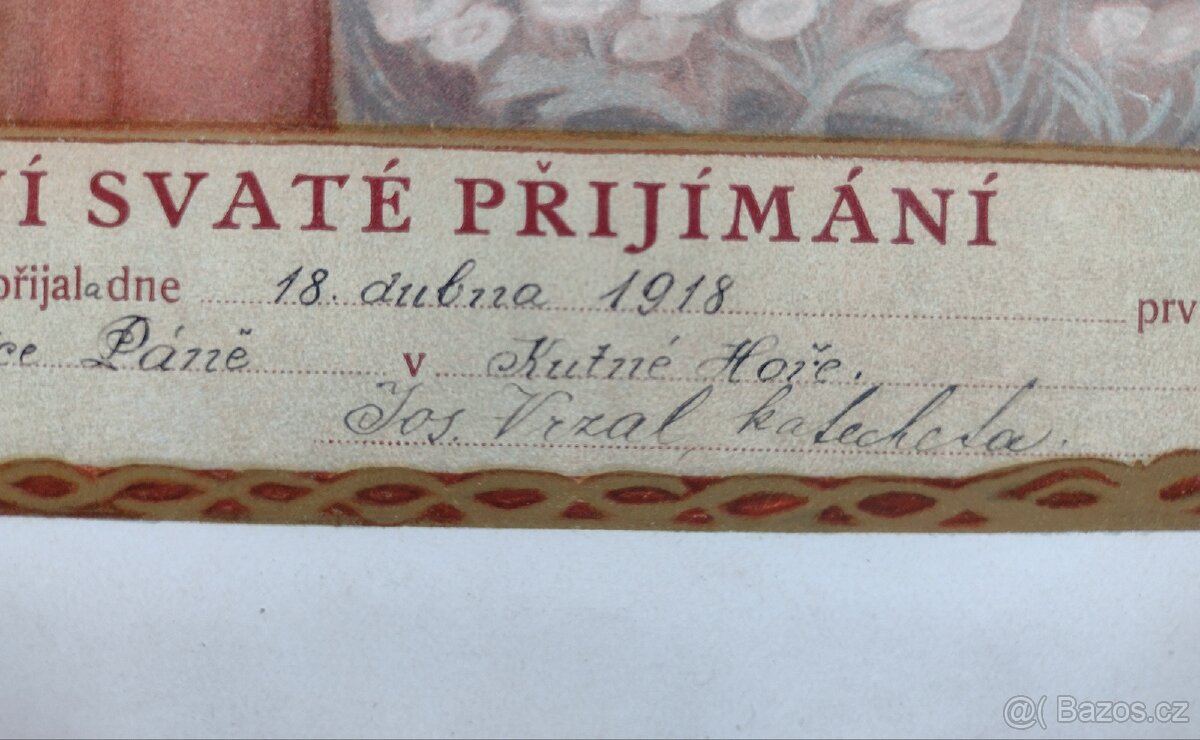 VÍ SVATÉ PŘIJÍMÁNÍ
přijala dne 18. dubna 1918 prv
ce Páně v Kutné Hoře.
Jos. Vrzal, katecheta.
@( Bazos.cz